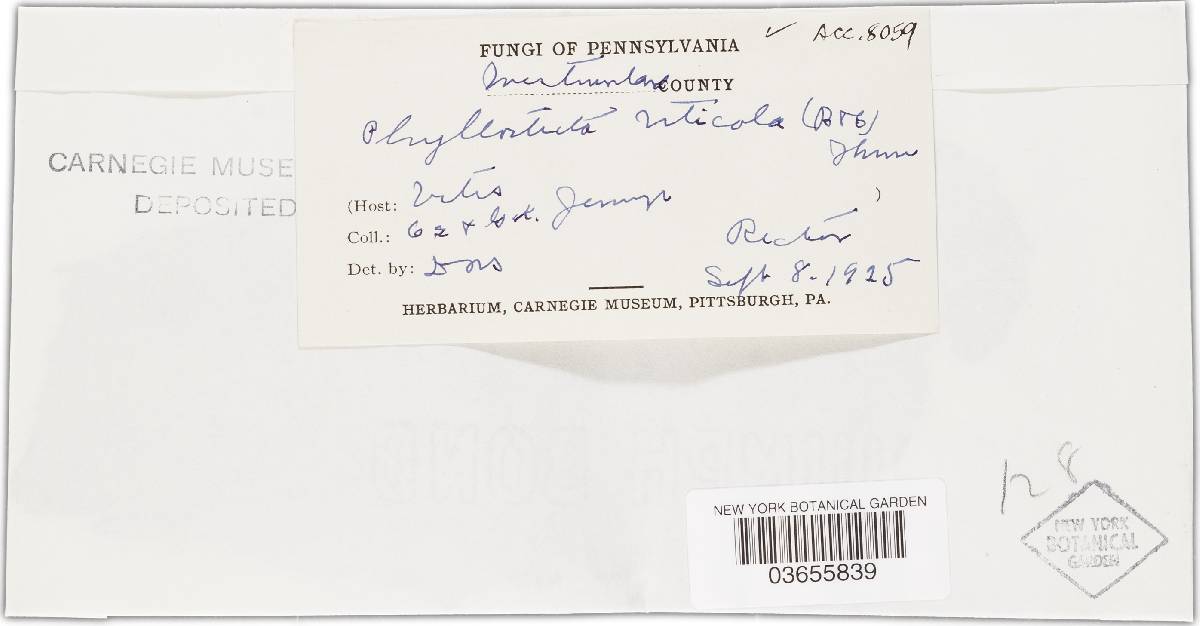 ✓ Acc. 8059
FUNGI OF PENNSYLVANIA
Westmoreland COUNTY
Phyllosticta viticola (B & C)
Thum
CARNEGIE MUSE
DEPOSITED
(Host: Vitis )
Coll.: O E & G K. Jennings
Rector
Det. by:
Sept 8-1925
HERBARIUM, CARNEGIE MUSEUM, PITTSBURGH, PA.
128
NEW YORK BOTANICAL GARDEN
03655839
NEW YORK
BOTANICAL
GARDEN